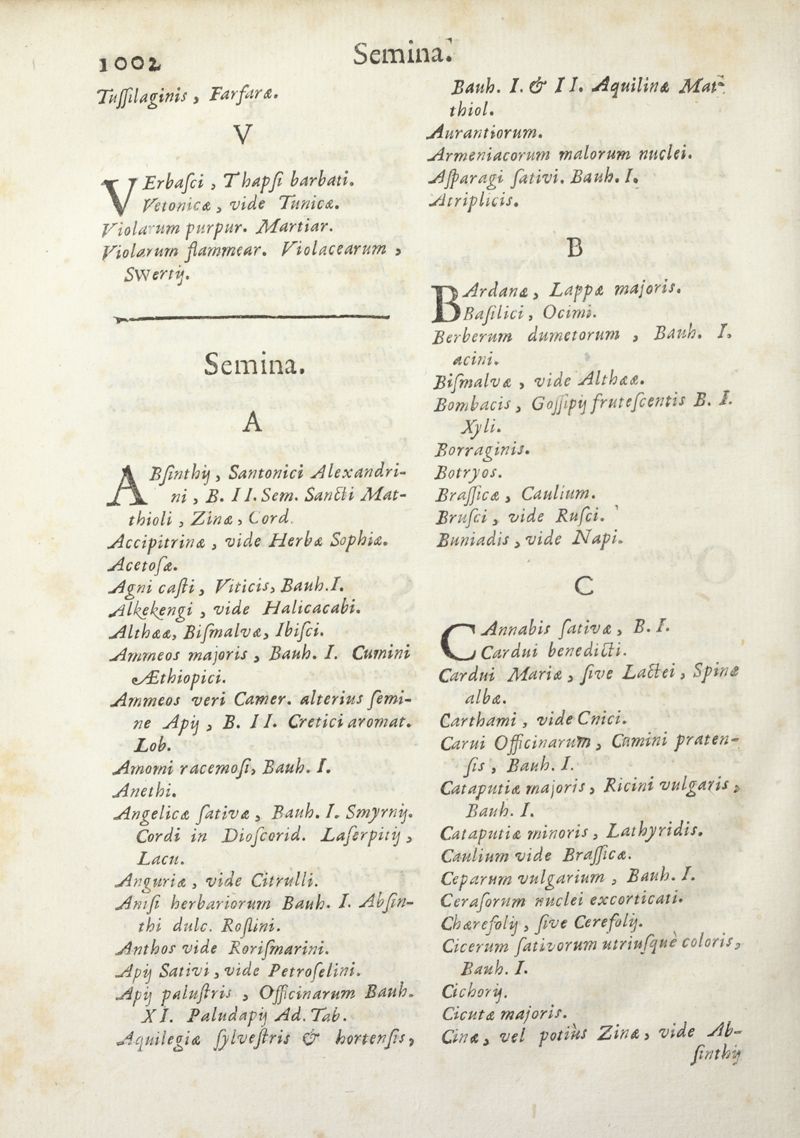 1002
Semina.
Tuſſilaginis, Farfaræ.
V
VErbaſci, Thapſi barbati.
Vetonicæ, vide Tunicæ.
Violarum purpur. Martiar.
Violarum flammear. Violacearum,
Swertij.
Semina.
A
ABſinthij, Santonici Alexandri-
ni, B. II. Sem. Sancti Mat-
thioli, Zinæ, Cord.
Accipitrinæ, vide Herbæ Sophiæ.
Acetoſæ.
Agni caſti, Viticis, Bauh. I.
Alkekengi, vide Halicacabi.
Althææ, Biſmalvæ, Ibiſci.
Ammeos majoris, Bauh. I. Cumini
Æthiopici.
Ammeos veri Camer. alterius ſemi-
ne Apij, B. II. Cretici aromat.
Lob.
Amomi racemoſi, Bauh. I.
Anethi.
Angelicæ ſativæ, Bauh. I. Smyrnij.
Cordi in Dioſcorid. Laſerpitij,
Lacu.
Anguriæ, vide Citrulli.
Aniſi herbariorum Bauh. I. Abſin-
thi dulc. Roſlini.
Anthos vide Roriſmarini.
Apij Sativi, vide Petroſelini.
Apij paluſtris, Officinarum Bauh.
XI. Paludapij Ad. Tab.
Aquilegiæ ſylveſtris & hortenſis,
Bauh. I. & II. Aquilinæ Mat-
thiol.
Aurantiorum.
Armeniacorum malorum nuclei.
Aſparagi ſativi. Bauh. I.
Atriplicis.
B
BArdanæ, Lappæ majoris.
Baſilici, Ocimi.
Berberum dumetorum, Bauh. I.
acini.
Biſmalvæ, vide Althææ.
Bombacis, Goſſipij fruteſcentis B. I.
Xyli.
Borraginis.
Botryos.
Braſſicæ, Caulium.
Bruſci, vide Ruſci.
Buniadis, vide Napi.
C
CAnnabis ſativæ, B. I.
Cardui benedicti.
Cardui Mariæ, ſive Lactei, Spinæ
albæ.
Carthami, vide Cnici.
Carui Officinarum, Cumini praten-
ſis, Bauh. I.
Cataputiæ majoris, Ricini vulgaris,
Bauh. I.
Cataputiæ minoris, Lathyridis.
Caulium vide Braſſicæ.
Ceparum vulgarium, Bauh. I.
Ceraſorum nuclei excorticati.
Chærefolij, ſive Cerefolij.
Cicerum ſativorum utriuſquè coloris,
Bauh. I.
Cichorij.
Cicutæ majoris.
Cinæ, vel potiùs Zinæ, vide Ab-
ſinthij